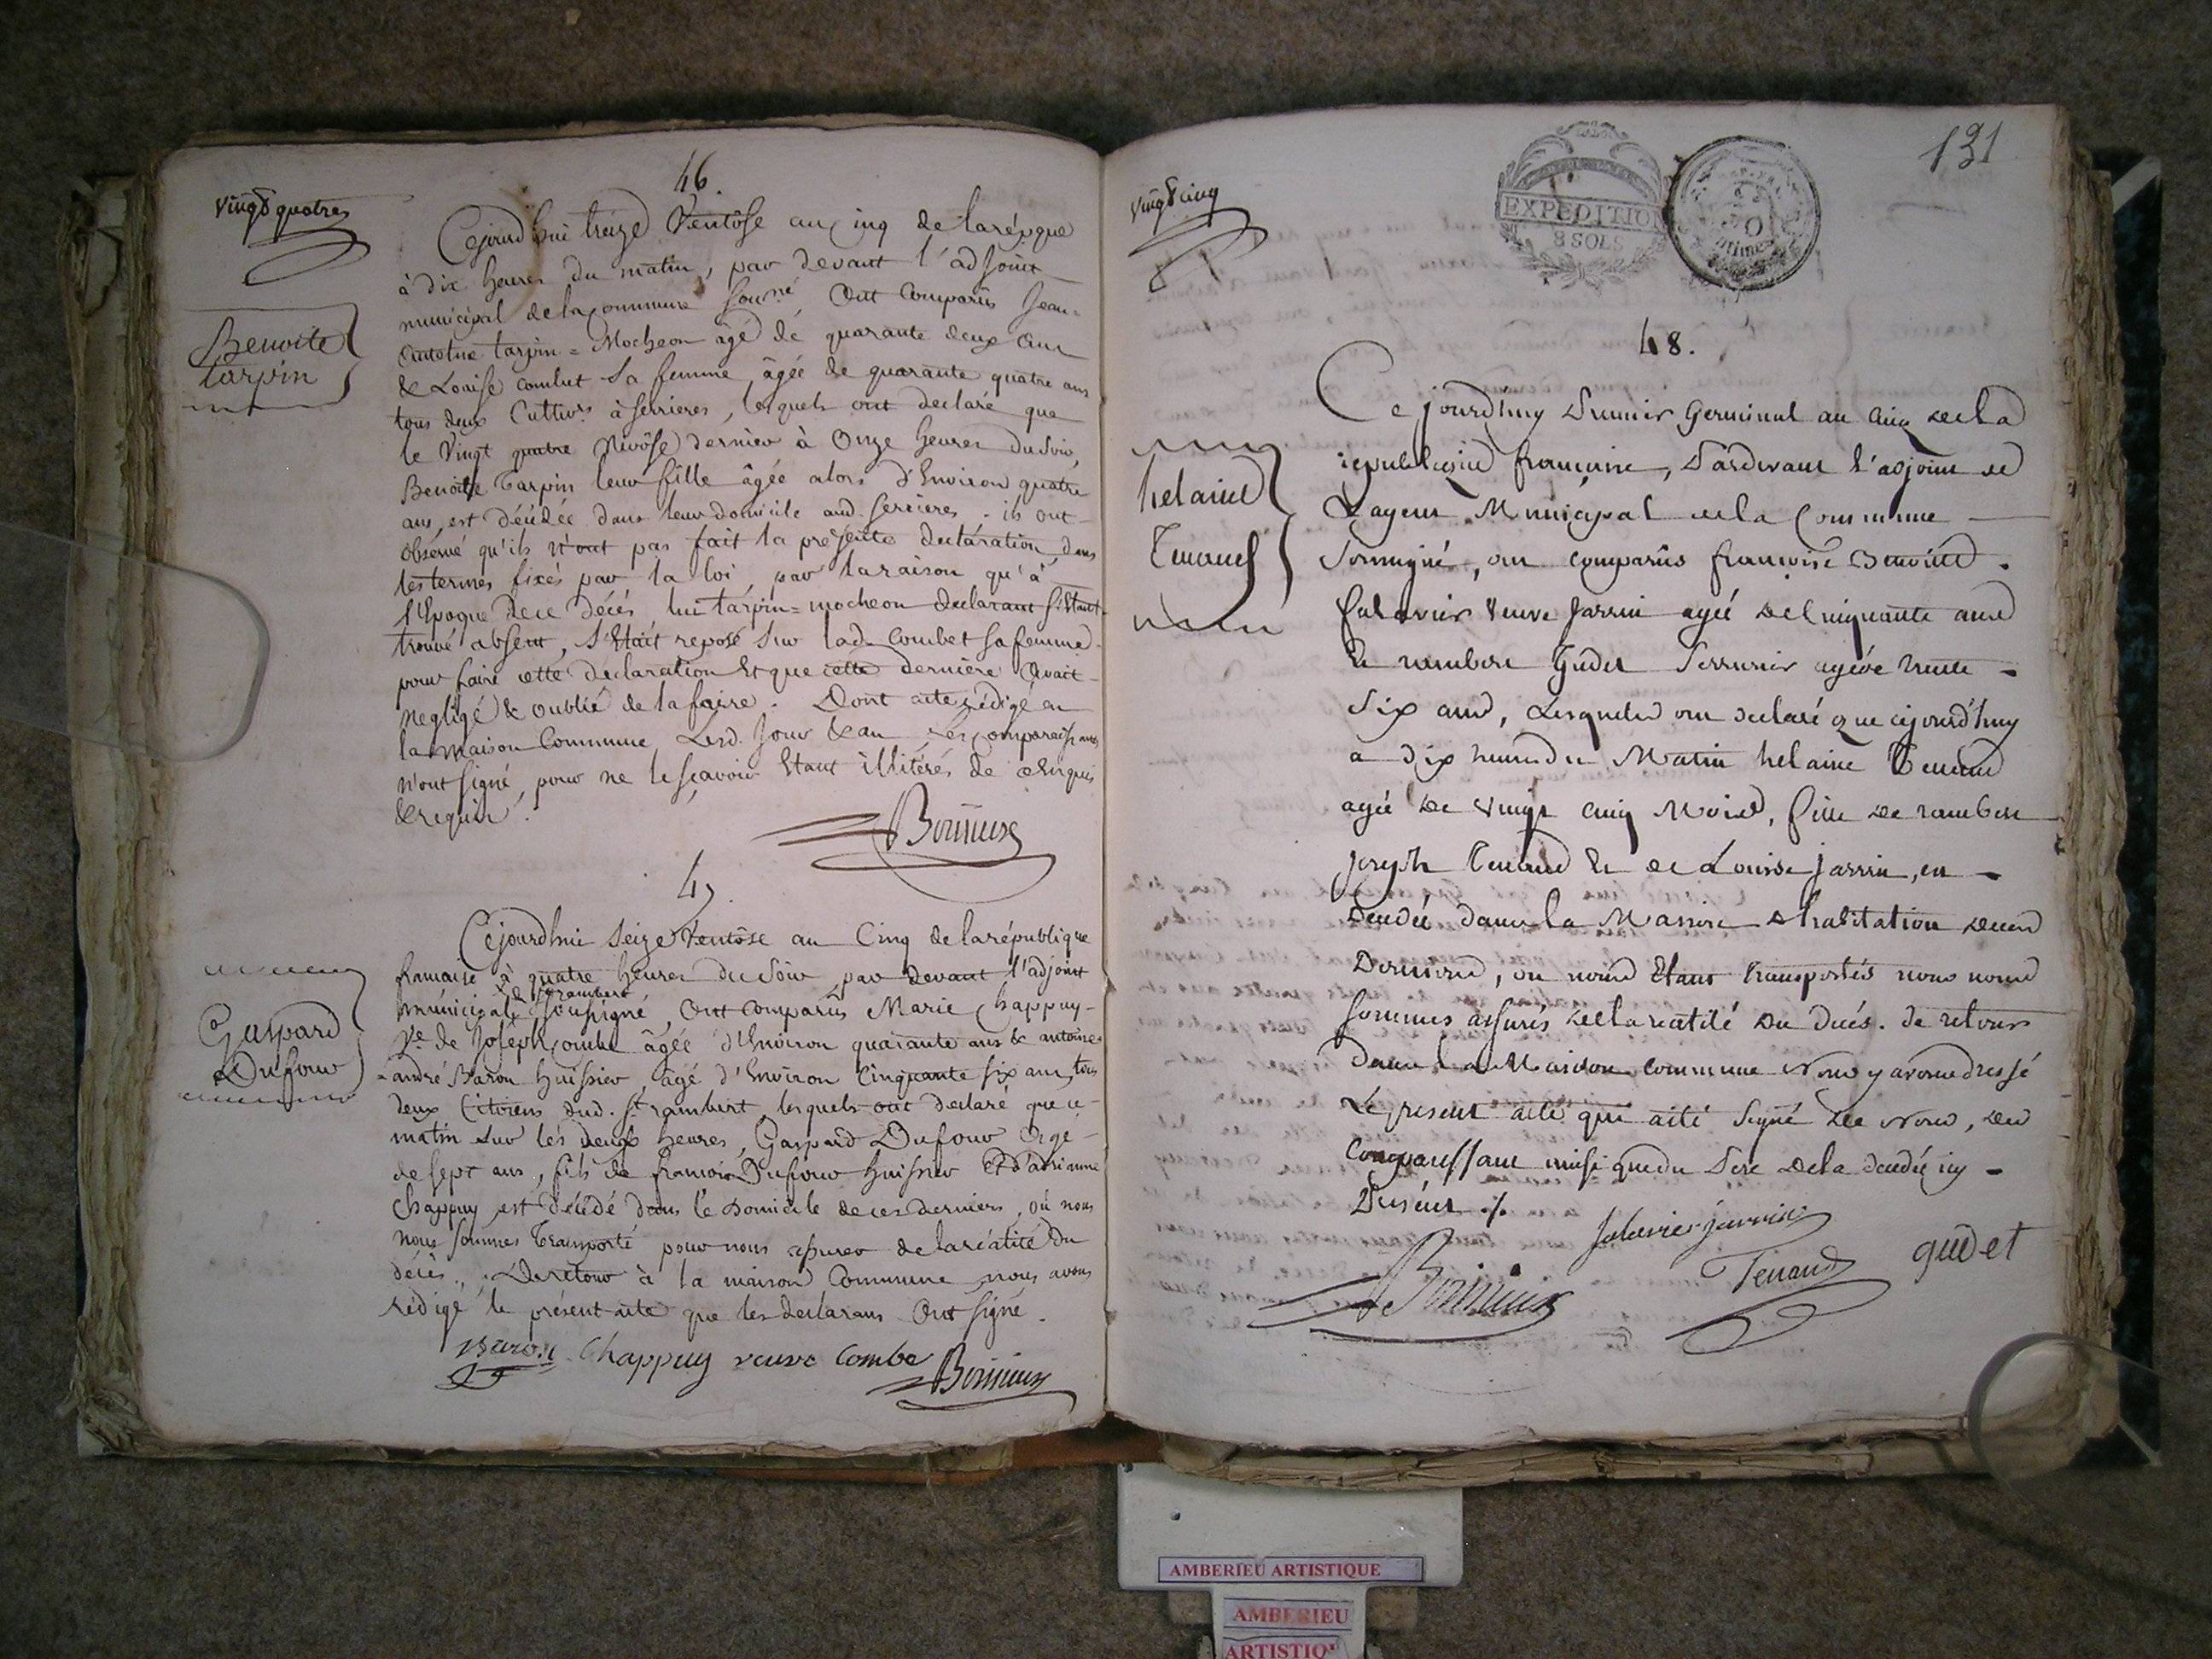 46.
vingt quatre
Benoite
tarpin
Cejourd'hui treize Ventôse an Cinq de la répque
à dix heures du matin, par devant l'adjoint
municipal de la Commune sousné Ont Comparûs Jean=
Antoine tarpin = Mocheon âgé de quarante deux ans
& Louise combet sa femme, âgée de quarante quatre ans
tous deux Cultivrs à serrieres, lesquels ont declaré que
le Vingt quatre Nivôse dernier à Onze heures du soir,
Benoite Tarpin leur fille âgée alors d'Environ quatre
ans, est décédée dans leur domicile aud. serrieres. ils ont
observé qu'ils n'ont pas fait la présente declaration dans
les termes fixés par la loi, par la raison qu'à
l'Epoque de ce décés lui tarpin=mocheon declarant s'Etant
trouvé absent, s'Etait reposé sur lad. Combet sa femme
pour faire cette declaration Et que cette derniere Avait
negligé & oublié de la faire. Dont acte rédigé en
la maison Commune, Lesd. Jour & an, Les Comparaissans
n'ont signé, pour ne le sçavoir Etant illiterés de ce Enquis
& requis.
Bonnieux
47.
Gaspard
Dufour
Cejourd'hui seize Ventôse an Cinq de la république
francaise à quatre heures du soir, par devant l'adjoint
municipal de St rambert sousigné, Ont comparûs Marie Chappuy
Ve de Joseph Combe âgée d'Environ quarante ans & antoine
=andré Baron huissier, âgé d'Environ Cinquante six ans, tous
deux Citoiens dud. St. rambert, lesquels ont declaré que ce
matin sur les deux heures, Gaspard Dufour âgé
de sept ans, fils de francois Dufour huissier Et d'
Chappuy, est décédé dans le domicile de ces derniers, où nous
nous sommes transporté pour nous assurer de la réalité du
décès. De retour à la maison Commune, nous avons
rédigé le présent acte que les declarans Ont signé.
Baron Chappuy veuve Combe Bonnieux
131
vingt cinq
EXPEDITION
8 SOLS
48.
helaine
Tenand
Ce jourd'huy Premier Germinal an Cinq de la
republique francaise, Pardevant l'adjoint de
L'agent Municipal de la Commune
Soussigné, ont comparûs francoise Benoite
falavier Veuve Jarrin agée de Cinquante ans
Et rambert Gudet Serrurier agé de trente
Six ans, Lesquels ont declaré que cejourd'huy
a dix heures du Matin helaine Tenand
agée de Vingt Cinq Mois, fille de rambert
joseph Tenand Et de Louise Jarrin, est
decedée dans la Maison d'habitation de ces
Derniers, ou nous Etant transportés nous nous
sommes assurés de la réalité du decés. de retour
dans la Maison Commune Nous y avons dressé
Le present acte qui a été signé de Nous, des
Comparaissant ainsi que du Pere de la decedée icy
Present ./.
falavier jarrin
Tenand gudet
Bonnieux
AMBERIEU ARTISTIQUE
AMBERIEU
ARTISTIQ